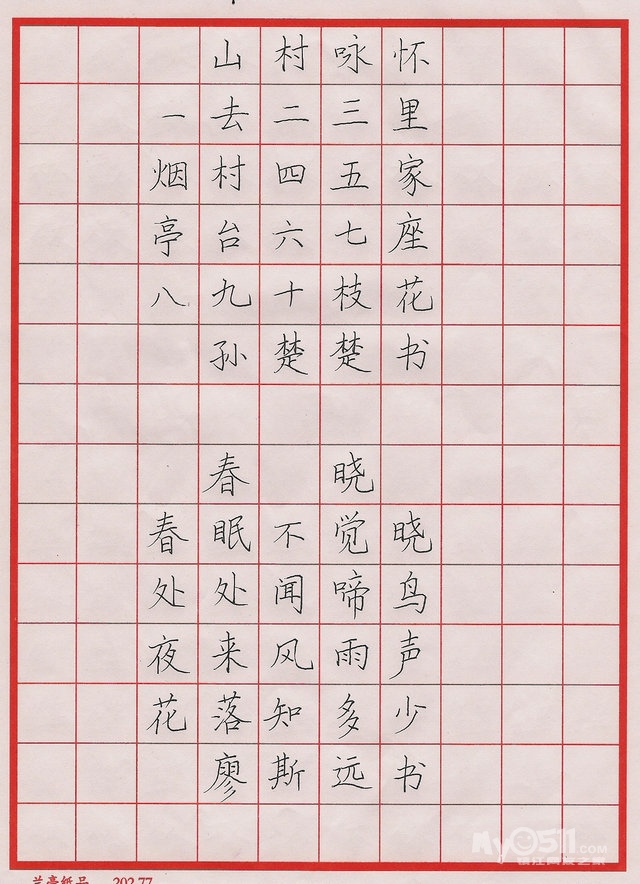 山村咏怀
一去二三里
烟村四五家
亭台六七座
八九十枝花
孙楚楚书
春晓
春眠不觉晓
处处闻啼鸟
夜来风雨声
花落知多少
廖斯远书
兰亭纸品 202.77
My0511.com
镇江网友之家